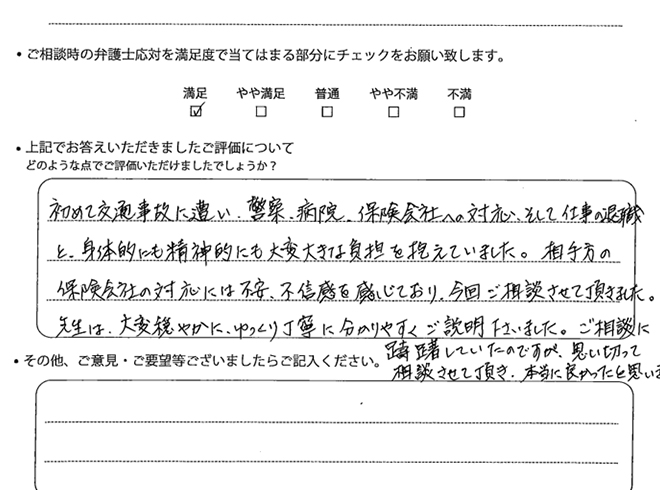 ・ご相談時の弁護士応対を満足度で当てはまる部分にチェックをお願い致します。
満足 やや満足 普通 やや不満 不満
・上記でお答えいただきましたご評価について
どのような点でご評価いただけましたでしょうか？
初めて交通事故に遭い、警察、病院、保険会社への対応、そして仕事の退職
と、身体的にも精神的にも大変大きな負担を抱えていました。相手方の
保険会社の対応には不安、不信感を感じており、今回ご相談させて頂きました。
先生は、大変穏やかに、ゆっくり丁寧に分かりやすくご説明下さいました。ご相談に
躊躇していたのですが、思い切って
・その他、ご意見・ご要望等ございましたらご記入ください。
相談させて頂き、本当に良かったと思いま